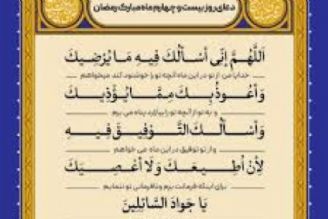 دعای روز بیست و چهارم ماه مبارک رمضان
اَللّهُمَّ اِنّی اَسأَلُكَ فیهِ ما یُرْضیكَ
خدایا من از تو در این ماه آنچه تو را خوشنود کند میخواهم
وَ اَعُوذُ بِكَ مِمّا یُؤْذیكَ
و به تو از آنچه تو را بیازارد پناه می برم
وَ اَسأَلُكَ التَّوْفیقَ فیهِ
و از تو توفیق در این ماه می خواهم
لِاَنْ اُطیعَكَ وَلا اَعْصِیَكَ
برای اینکه فرمانت برم و نافرمانی تو ننمایم
یا جَوادَ السّائِلینَ